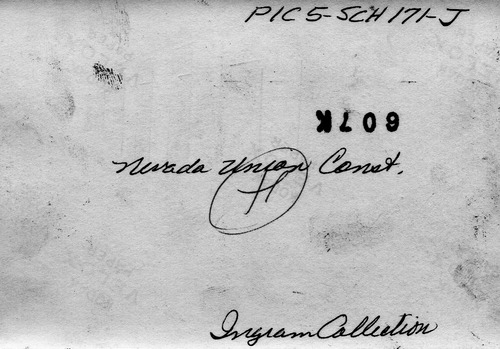 PIC 5-SCH 171-J
607K
Nevada Union Const.
H
Ingram Collection